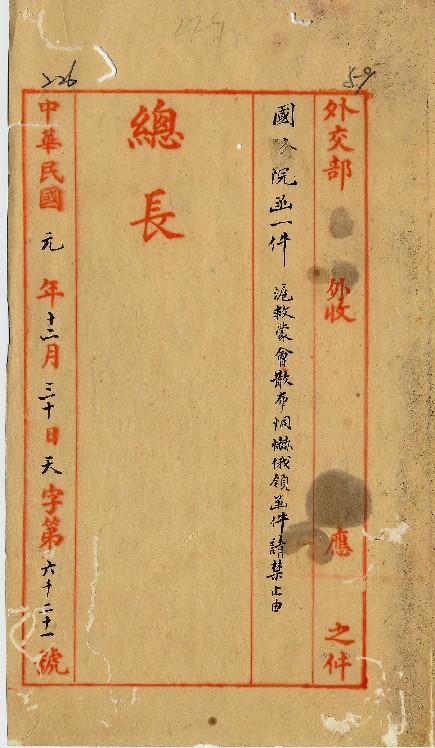 59
226
外交部 外收 應 之件
國務院函一件 滬救蒙會散布恫嚇俄領函件請禁止由
總長
中華民國元年十二月三十日天字第六千二十一號